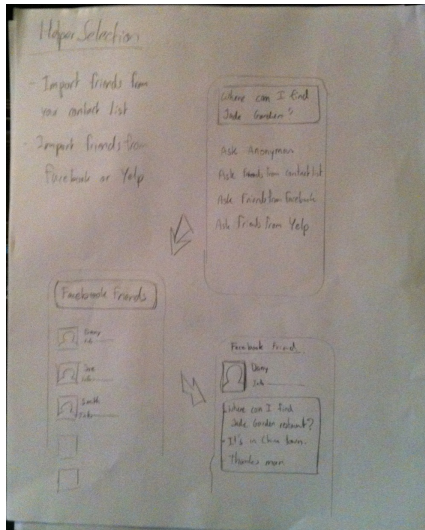 Helper Selection
- Import friends from
your contact list
- Import friends from
Facebook or Yelp
Where can I find
Jade Garden?
Ask Anonymous
Ask friends from contact list
Ask Friends from Facebook
Ask Friends from Yelp
Facebook Friends
Danny
Joe
Smith
Facebook Friend
Danny
Where can I find
Jade Garden restaurant?
- It's in China town.
Thanks man